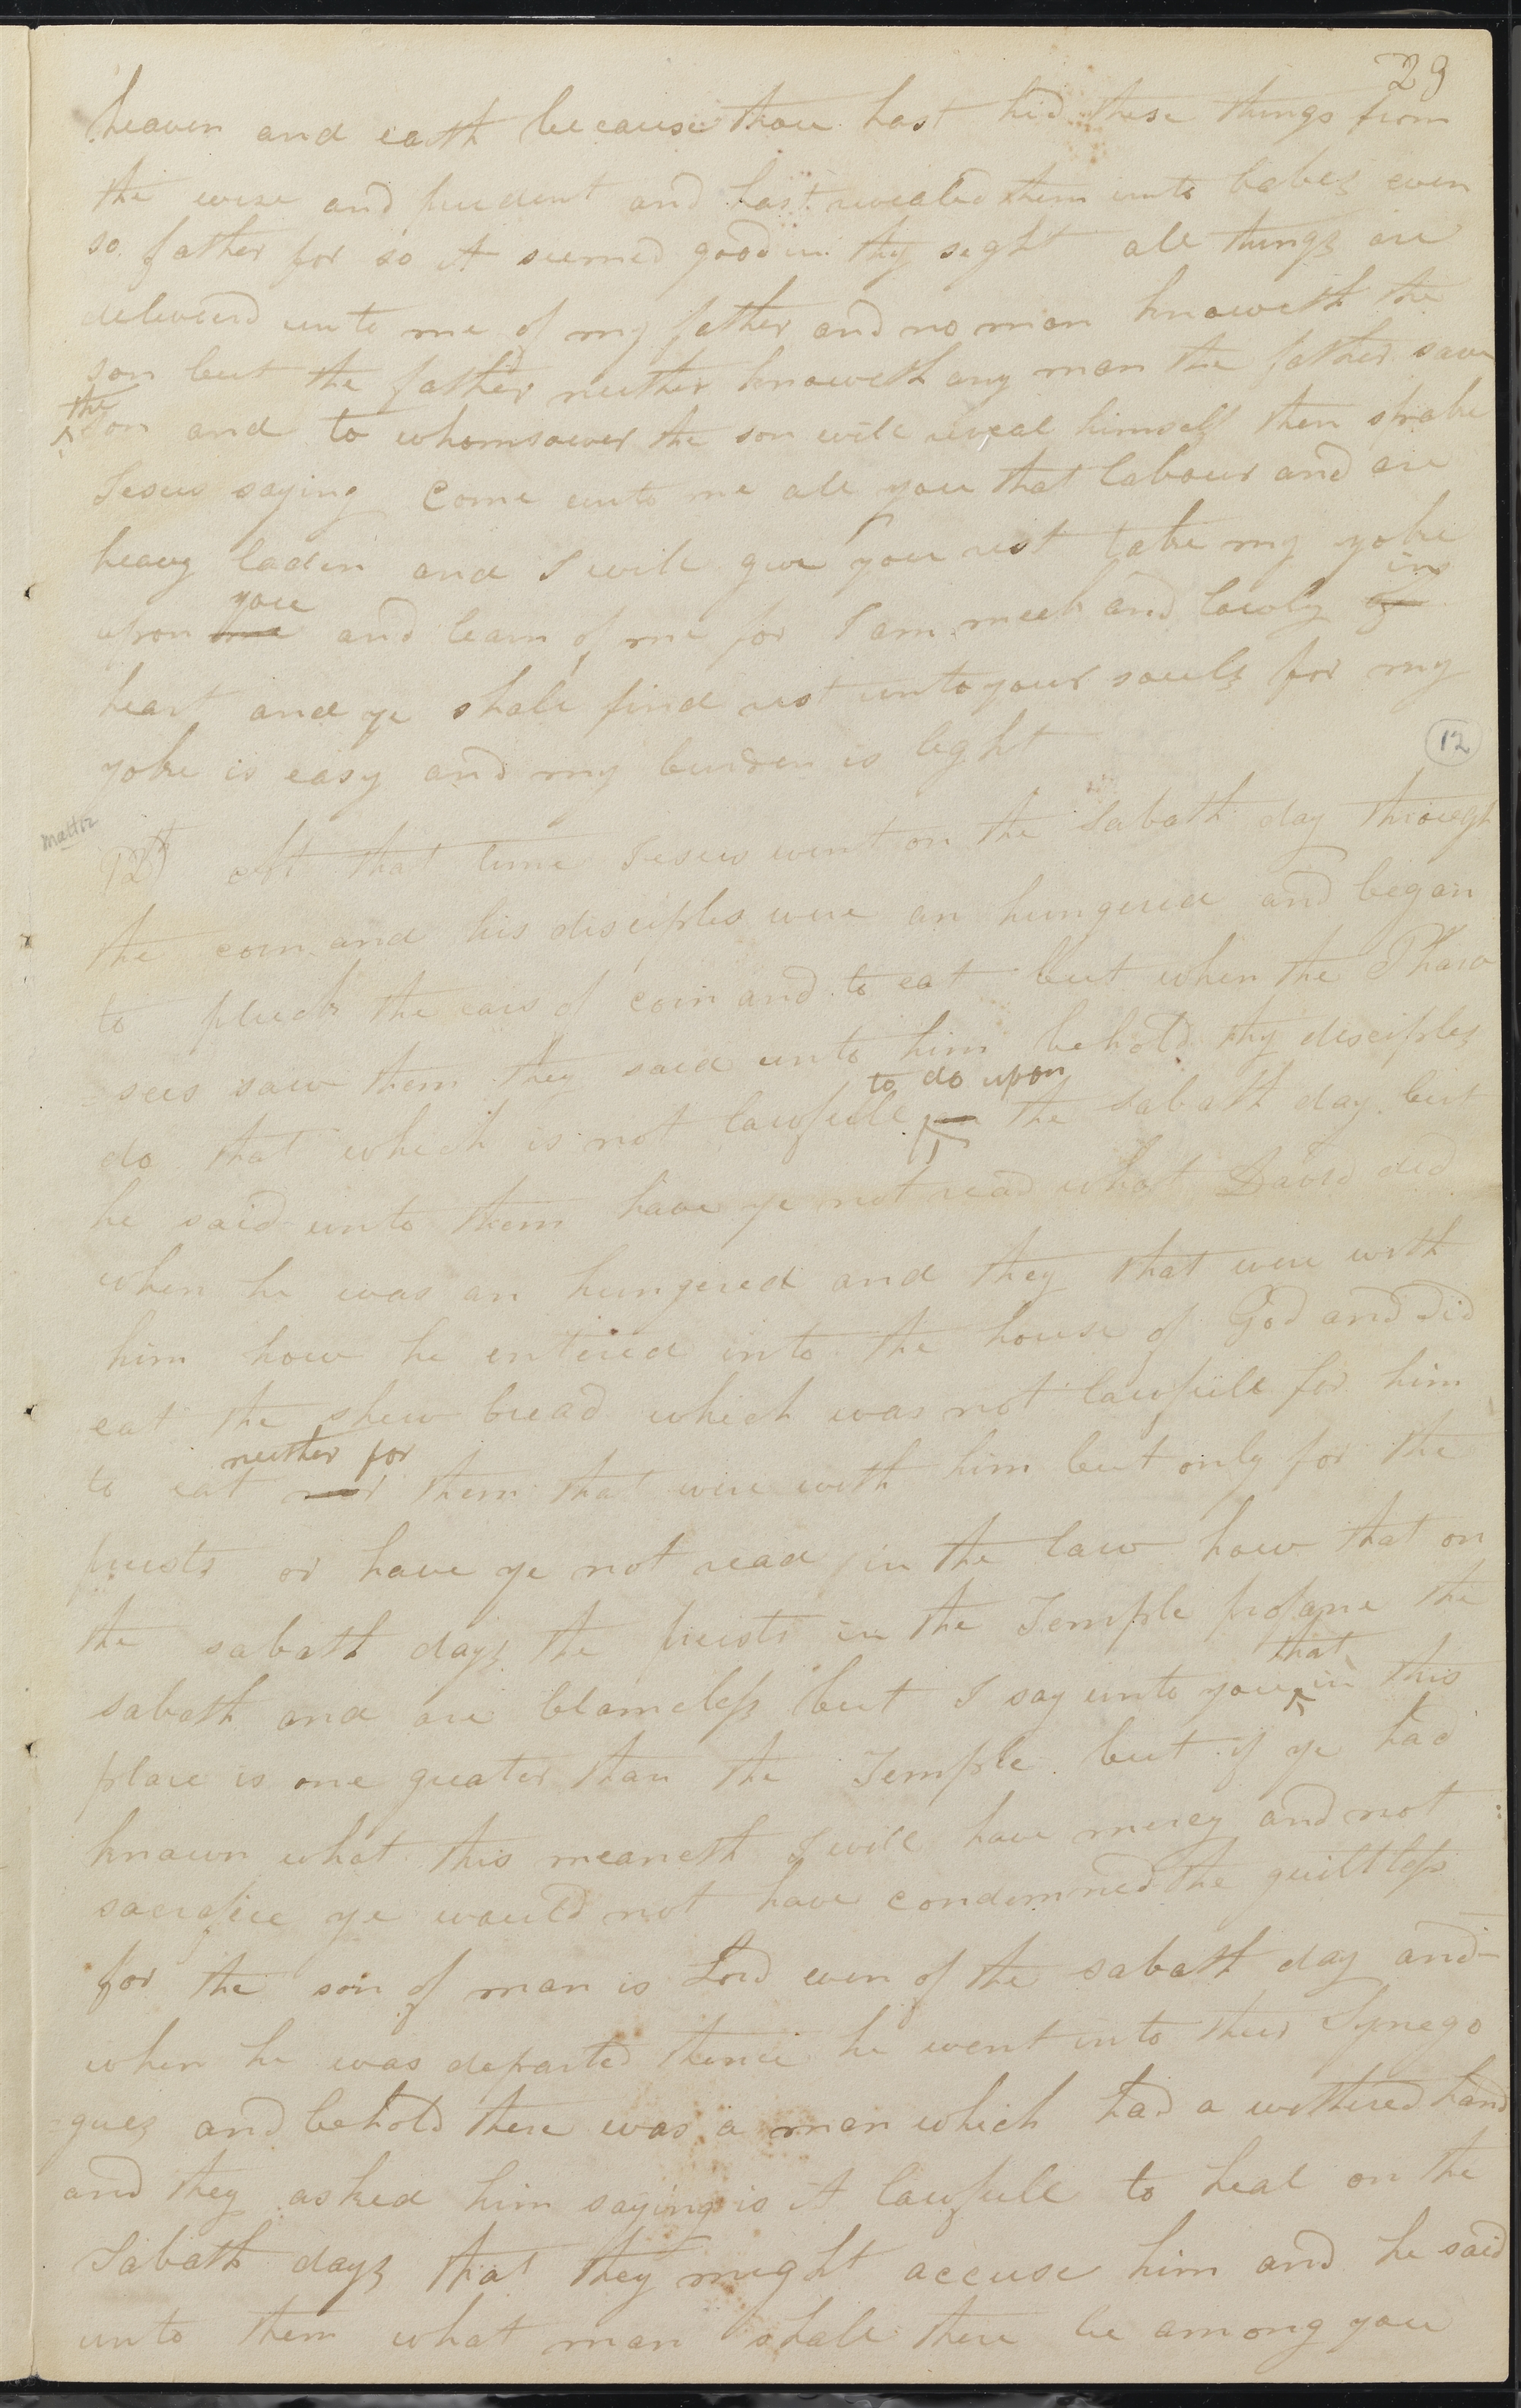 29
heaven and earth because thou hast hid these things from
the wise and prudent and hast revealed them unto babes even
so father for so it seemed good in thy sight all things are
delivered unto me of my father and no man knoweth the
son but the father neither knoweth any man the father save
the
son and to whomsoever the son will reveal himself then spake
Jesus saying come unto me all you that labour and are
heavy laden and I will give you rest take my yoke
you in
upon me and learn of me for I am meek and lowly of
heart and ye shall find rest unto your souls for my
yoke is easy and my burden is light
12
12th At that time Jesus went on the Sabath day through
the corn and his disciples were an hungered and began
to pluck the ears of corn and to eat but when the Phari
=sees saw them they said unto him behold thy disciples
to do upon
do that which is not lawfull on the sabath day but
he said unto them have ye not read what David did
when he was an hungered and they that were with
him how he entered into the house of God and did
eat the shew bread which was not lawfull for him
neither for
to eat nor them that were with him but only for the
priests or have ye not read in the law how that on
the sabath days the priests in the Temple profane the
that
sabath and are blameless but I say unto you in this
place is one greater than the Temple but if ye had
known what this meaneth I will have mercy and not
sacrifice ye would not have condemned the guiltless
for the son of man is Lord even of the sabath day and
when he was departed thence he went into their Synego
gues and behold there was a man which had a withered hand
and they asked him saying is it lawfull to heal on the
Sabath days that they might accuse him and he said
unto them what man shall there be among you